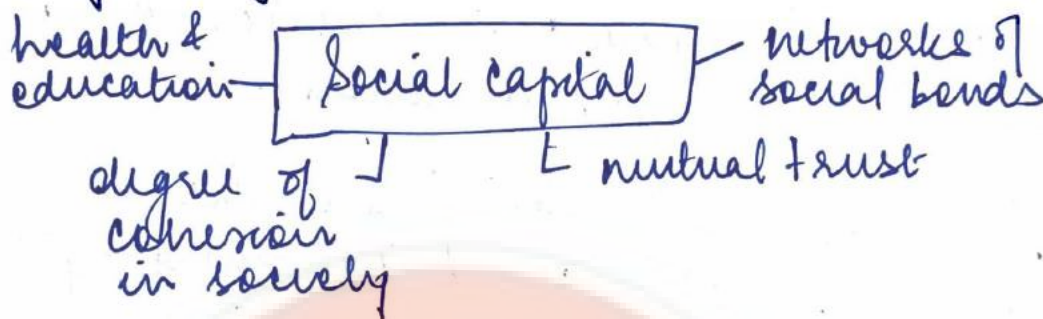 health &
education
Social capital
networks of
social bonds
degree of
cohesion
in society
mutual trust